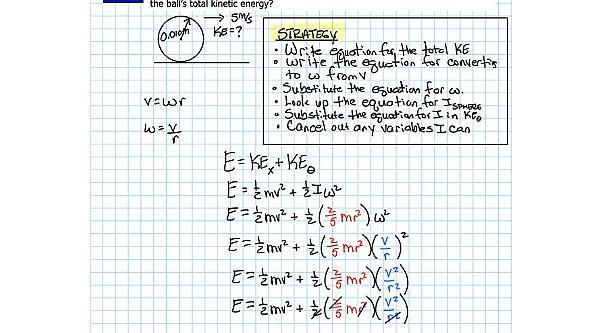 the ball's total kinetic energy?
→ 5m/s
0.010m
KE=?
STRATEGY
• Write equation for the total KE
• Write the equation for converting
to ω from v
• Substitute the equation for ω.
• Look up the equation for I SPHERE
• Substitute the equation for I in KEθ
• Cancel out any variables I can
v=ωr
ω=v/r
E=KEx+KEθ
E=½mv²+½Iω²
E=½mv²+½(⅖mr²)ω²
E=½mv²+½(⅖mr²)(v/r)²
E=½mv²+½(⅖mr²)(v²/r²)
E=½mv²+½(⅖mr²)(v²/r²)